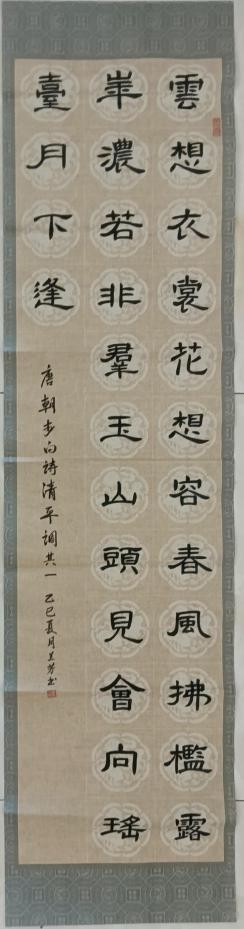 雲想衣裳花想容春風拂檻露
華濃若非羣玉山頭見會向瑤
臺月下逢
唐朝李白詩清平調其一 乙巳夏月芳书